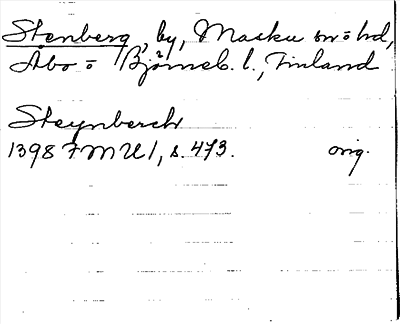 Stenberg, by, Masku sn o hd,
Åbo o Björneb. l., Finland
Steynberch
1398 FMU 1, s. 473. orig.